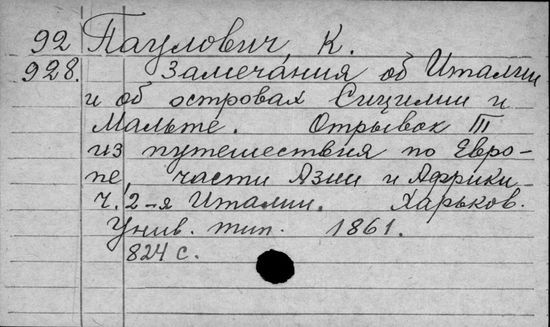 92 Паулович, К.
928. Замечания об Италии
и об островах Сицилии и
Мальте. Отрывок III
из путешествия по Евро-
пе, части Азии и Африки
ч. 2-я Италии. Харьков.
Унив. тип. 1861.
824 с.